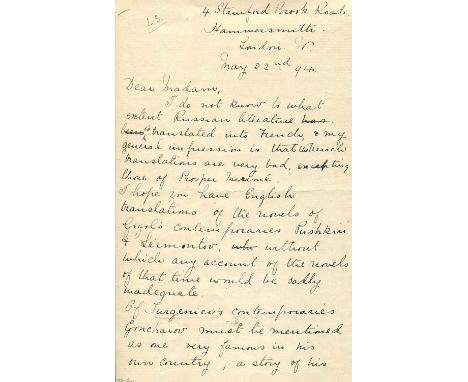 4 Stamford Brook Road
Hammersmith.
London. W.
May 22nd 94.
Dear Madam,
I do not know to what
extent Russian literature has
been is translated into French, & my
general impression is that the French
translations are very bad, excepting
those of Prosper Merimé
I hope you have English
translations of the novels of
Gogol's contemporaries Pushkin
& Lermontov, who without
which any account of the novels
of that time would be sadly
inadequate.
Of Turgeniev's contemporaries
Goncharov must be mentioned
as one very famous in his
own country, a story of his